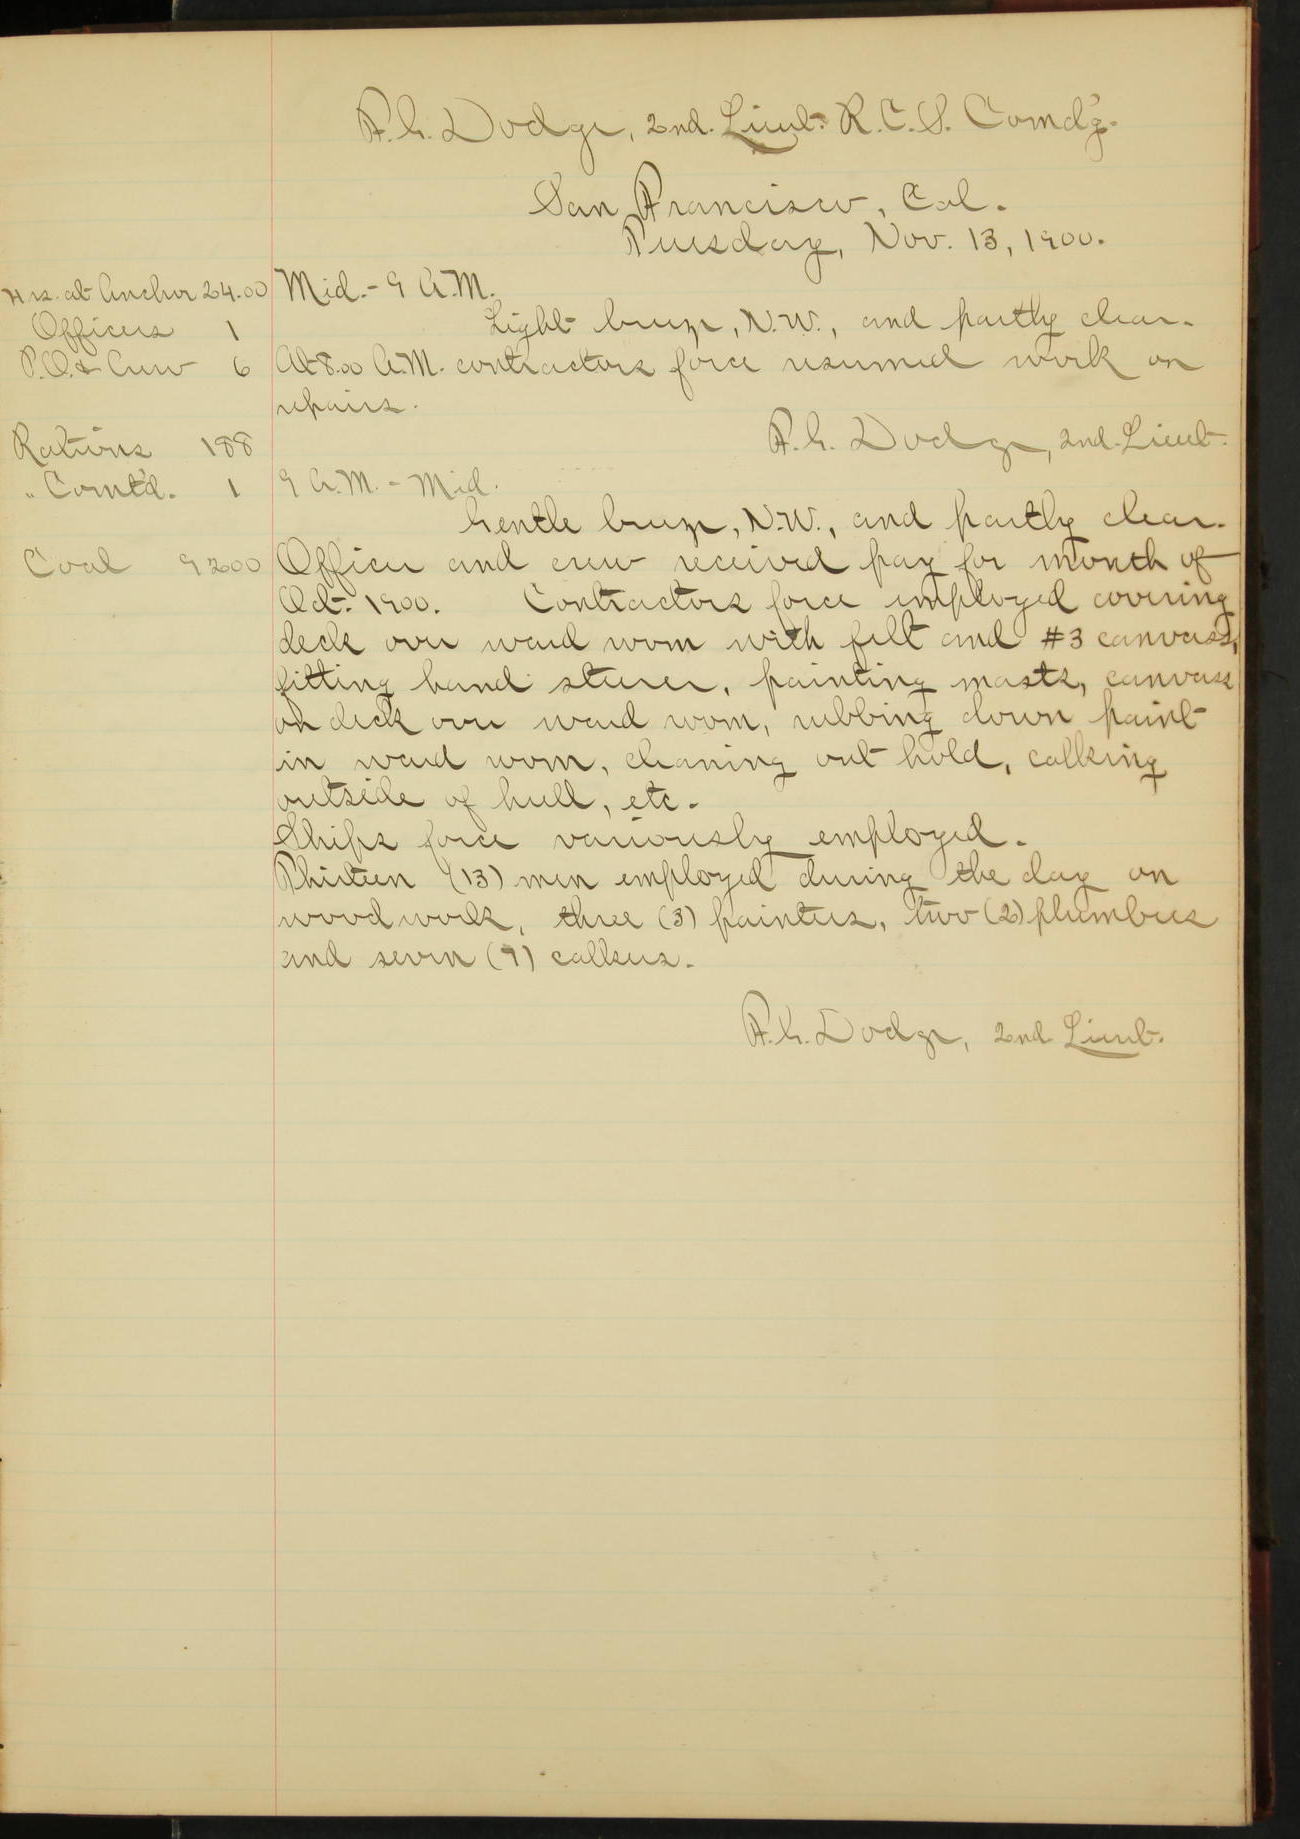 F.G. Dodge, 2nd. Lieut. R.C.S. Comd'g.
San Francisco, Cal.
Tuesday, Nov. 13, 1900.
Hrs. at Anchor 24.00
Officers 1
P.O. & Crew 6
Rations 188
" Comt'd. 1
Coal 9200
Mid. - 9 A.M.
Light breeze, N.W., and partly clear.
At 8.00 A.M. contractors force resumed work on
repairs.
F.G. Dodge, 2nd. Lieut.
9 A.M. - Mid.
Gentle breeze, N.W., and partly clear.
Officer and crew received pay for month of
Oct. 1900. Contractors force employed covering
deck over ward room with felt and #3 canvass,
fitting hand steerer, painting masts, canvass
on deck over ward room, rubbing down paint
in ward room, cleaning out hold, calking
outside of hull, etc.
Ships force variously employed.
Thirteen (13) men employed during the day on
wood work, three (3) painters, two (2) plumbers
and seven (7) calkers.
F.G. Dodge, 2nd Lieut.